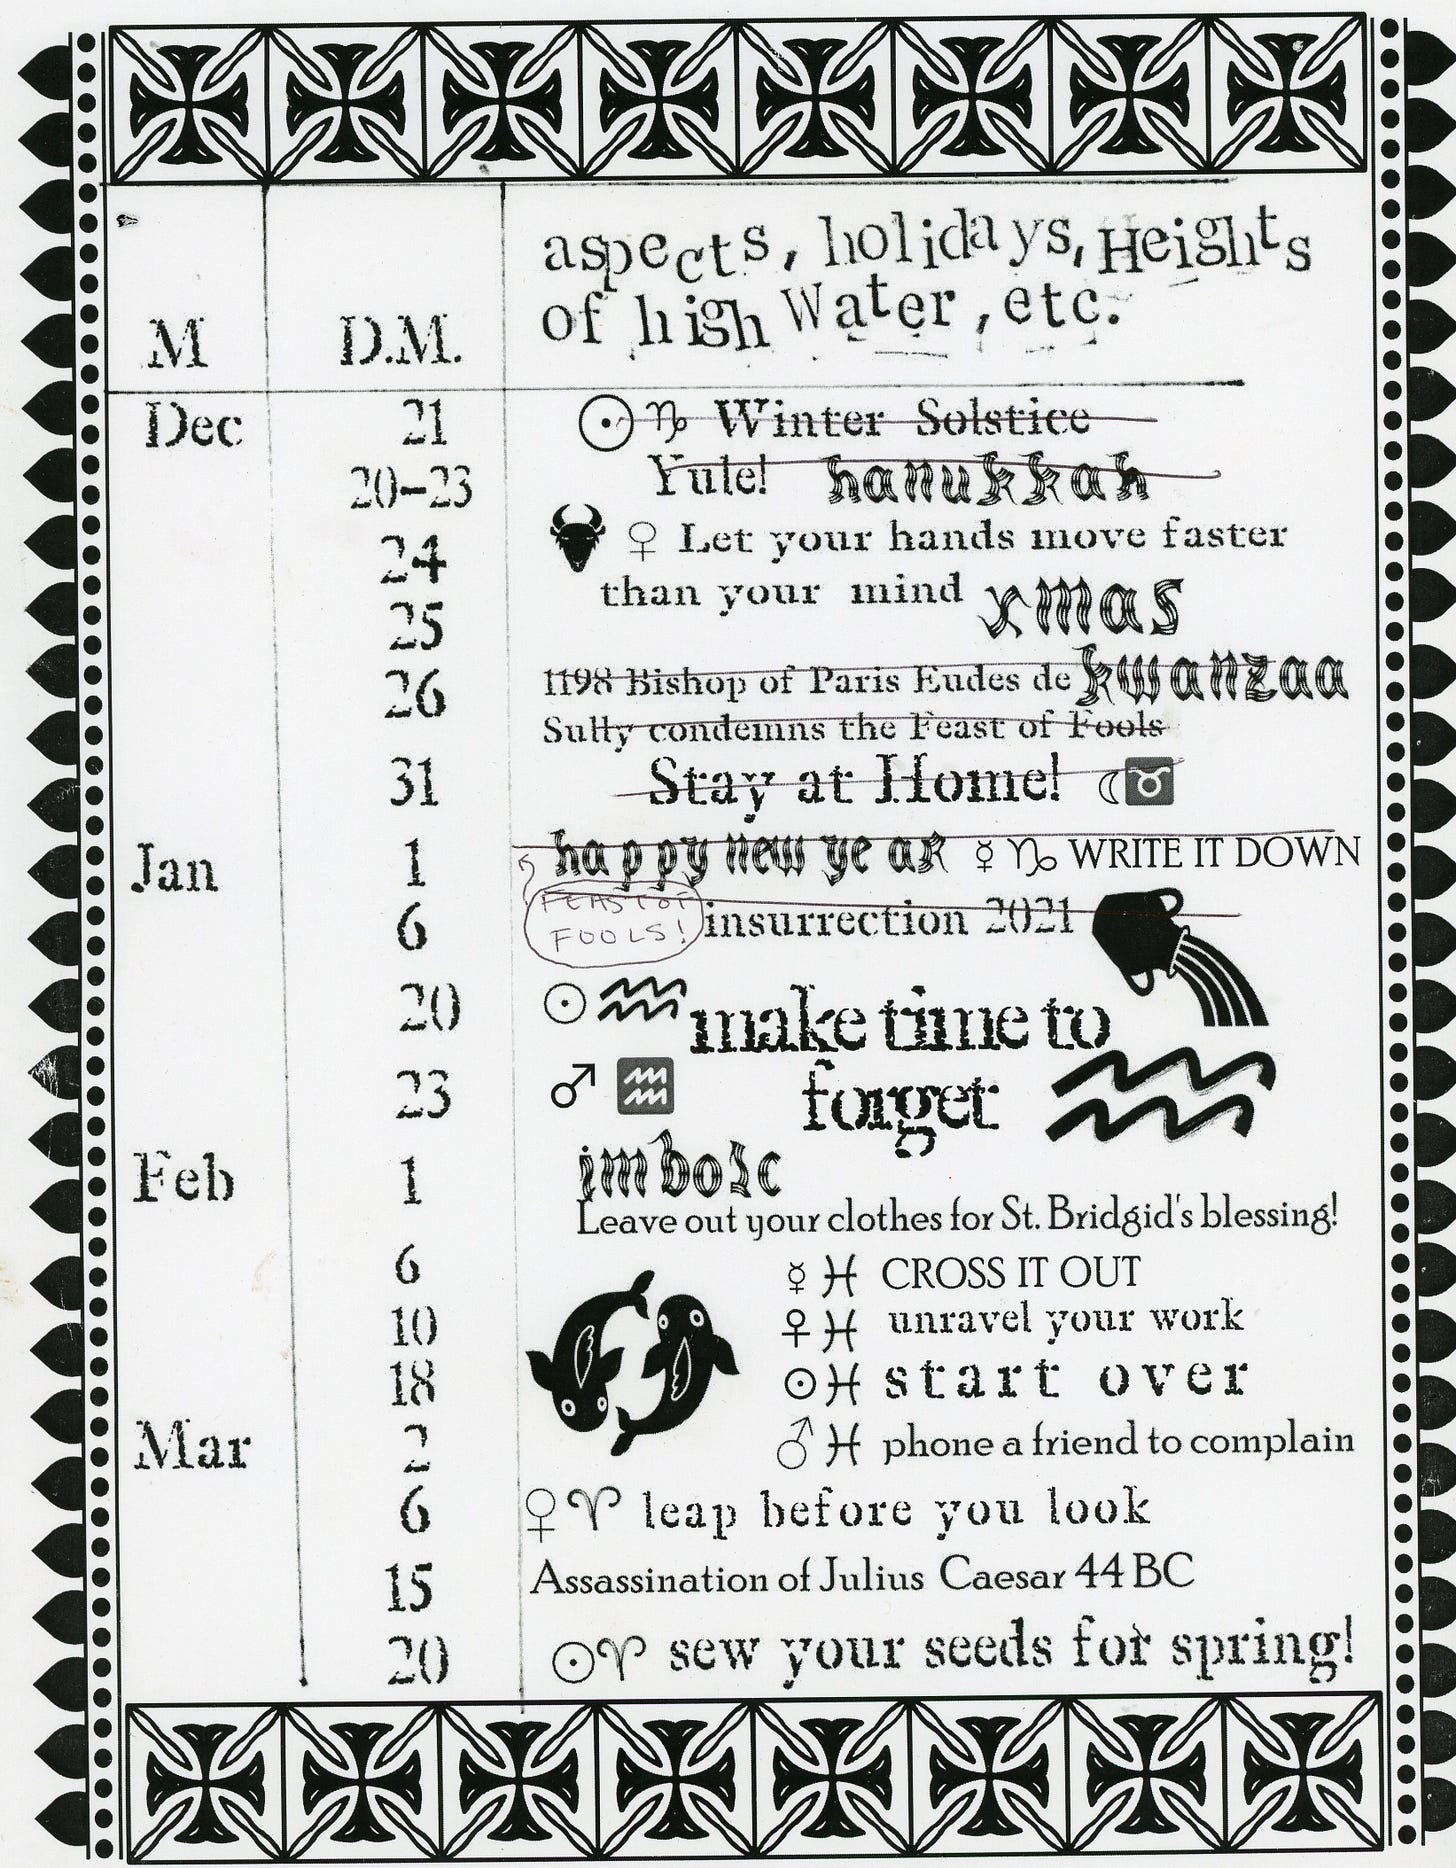 aspects, holidays, Heights
of high Water, etc.
M D.M.
Dec 21 ☉ ♑ Winter Solstice
20-23 Yule! hanukkah
24 ♀ Let your hands move faster
than your mind xmas
25
26 1198 Bishop of Paris Eudes de kwanzaa
Sully condemns the Feast of Fools
31 Stay at Home! ☾ ♉
Jan 1 happy new yeaR ☿ ♑ WRITE IT DOWN
6 FEAST OF
FOOLS! insurrection 2021
20 ☉ ♒ make time to
23 ♂ ♒ forget
Feb 1 imbolc
Leave out your clothes for St. Bridgid's blessing!
6 ☿ ♓ CROSS IT OUT
10 ♀ ♓ unravel your work
18 ☉ ♓ start over
Mar 2 ♂ ♓ phone a friend to complain
6 ♀ ♈ leap before you look
15 Assassination of Julius Caesar 44 BC
20 ☉ ♈ sew your seeds for spring!